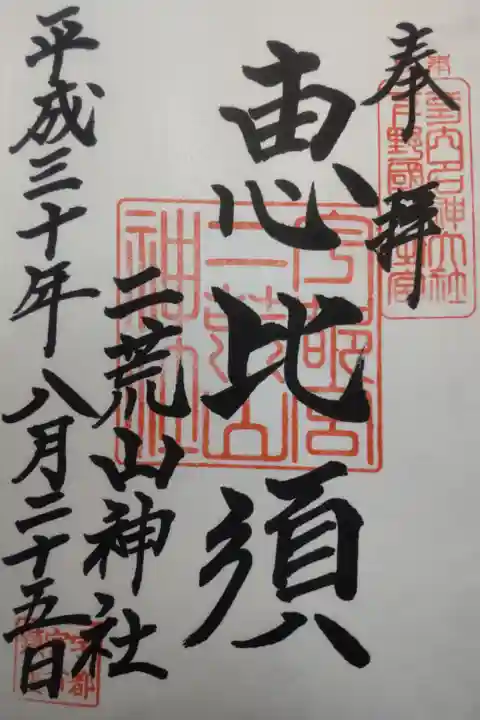 奉拝
恵比須
二荒山神社
平成三十年八月二十五日
宇都宮二荒山神社